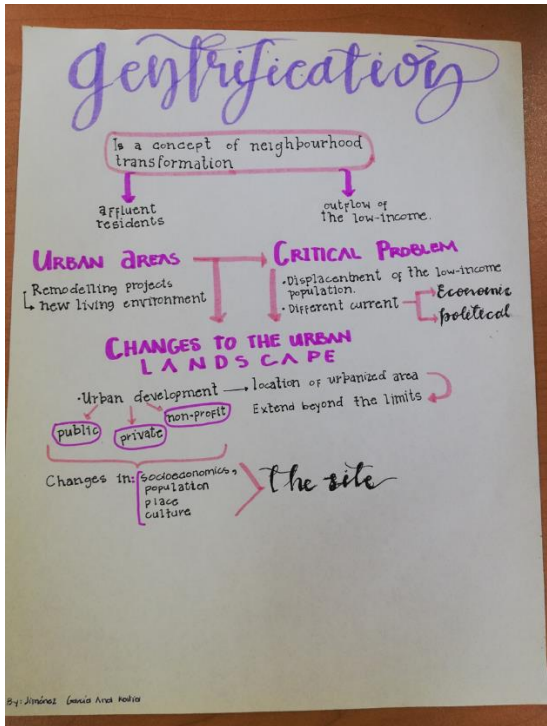 gentrification
Is a concept of neighbourhood
transformation
affluent
residents
outflow of
the low-income.
URBAN AREAS
Remodelling projects
new living environment
CRITICAL PROBLEM
·Displacentment of the low-income
population.
·Different current
Economic
political
CHANGES TO THE URBAN
LANDSCAPE
·Urban development
location of urbanized area
Extend beyond the limits
public
private
non-profit
Changes in:
socioeconomics,
population
place
culture
The site
By: Jiménez García And